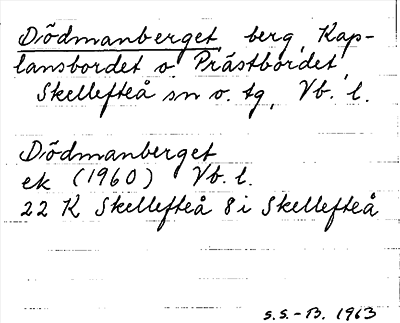 Dödmanberget, berg, Kap-
lansbordet o. Prästbordet,
Skellefteå sn o. tg, Vb. l.
Dödmanberget
ek (1960) Vb. l.
22 K Skellefteå 8 i Skellefteå
S.S.-B. 1963